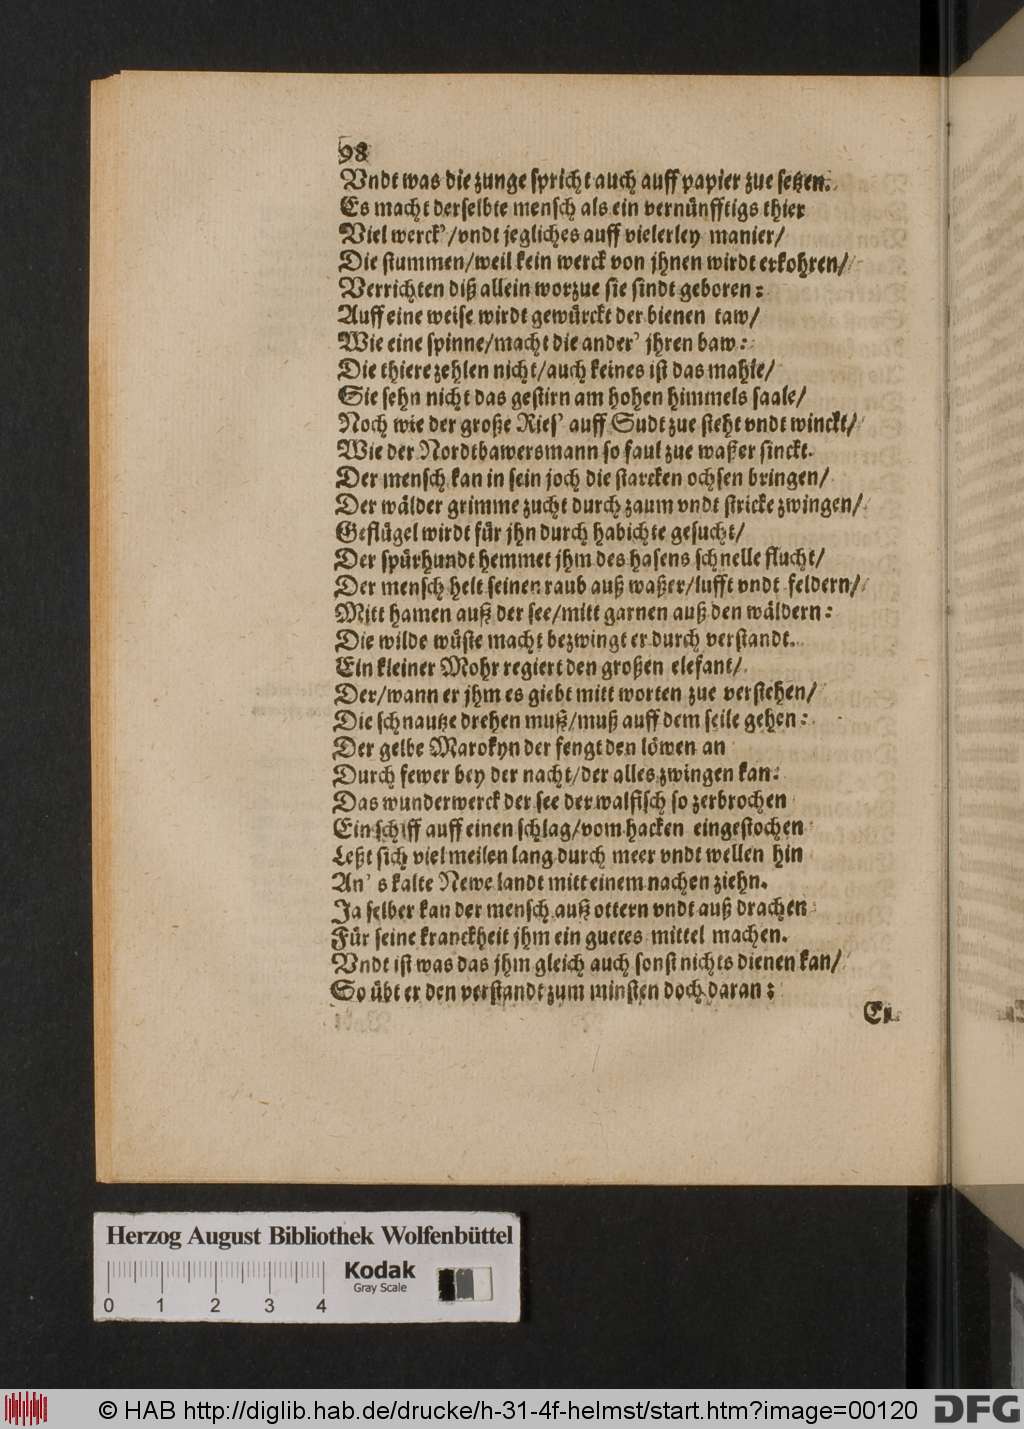 98
Vndt was die zunge spricht auch auff papier zue setzen.
Es macht derselbte mensch als ein vernünfftigs thier
Viel werck'/vndt jegliches auff vielerley manier/
Die stummen/weil kein werck von jhnen wirdt erkohren/
Verrichten diß allein worzue sie sindt geboren:
Auff eine weise wirdt gewürckt der bienen taw/
Wie eine spinne/macht die ander' jhren baw:
Die thiere zehlen nicht/auch keines ist das mahle/
Sie sehn nicht das gestirn am hohen himmels saale/
Noch wie der große Ries' auff Sudt zue steht vndt winckt/
Wie der Nordtbawersmann so faul zue waßer sinckt.
Der mensch kan in sein joch die starcken ochsen bringen/
Der wälder grimme zucht durch zaum vndt stricke zwingen/
Geflügel wirdt für jhn durch habichte gesucht/
Der spürhundt hemmet jhm des hasens schnelle flucht/
Der mensch helt seinen raub auß waßer/lufft vndt feldern/
Mitt hamen auß der see/mitt garnen auß den wäldern:
Die wilde wüste macht bezwingt er durch verstandt.
Ein kleiner Mohr regiert den großen elefant/
Der/wann er jhm es giebt mitt worten zue verstehen/
Die schnautze drehen muß/muß auff dem seile gehen:
Der gelbe Marokyn der fengt den löwen an
Durch fewer bey der nacht/der alles zwingen kan:
Das wunderwerck der see der walfisch so zerbrochen
Ein schiff auff einen schlag/vom hacken eingestochen
Leßt sich viel meilen lang durch meer vndt wellen hin
An' s kalte Newe landt mitt einem nachen ziehn.
Ja selber kan der mensch auß ottern vndt auß drachen
Für seine kranckheit jhm ein guetes mittel machen.
Vndt ist was das jhm gleich auch sonst nichts dienen kan/
So übt er den verstandt zum minsten doch daran:
Er
Herzog August Bibliothek Wolfenbüttel
Kodak
Gray Scale
0 1 2 3 4
© HAB http://diglib.hab.de/drucke/h-31-4f-helmst/start.htm?image=00120
DFG